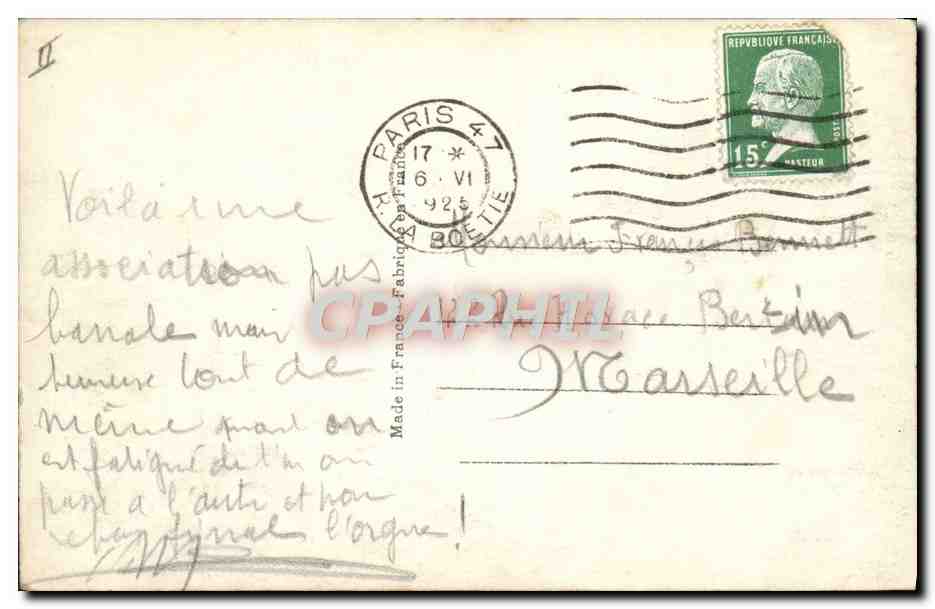 II
REPVBLIQUE FRANÇAISE
15c
POSTES
PASTEUR
PARIS 47
17 *
6 VI
925
R. LA BOETIE
Made in France - Fabriqué en France
CPAPHIL
Voila une
association pas
banale mais
heureuse tout de
même quand on
est fatigué de l'un on
passe à l'autre et pour
final l'orgue!
Monsieur Bennett
Marseille